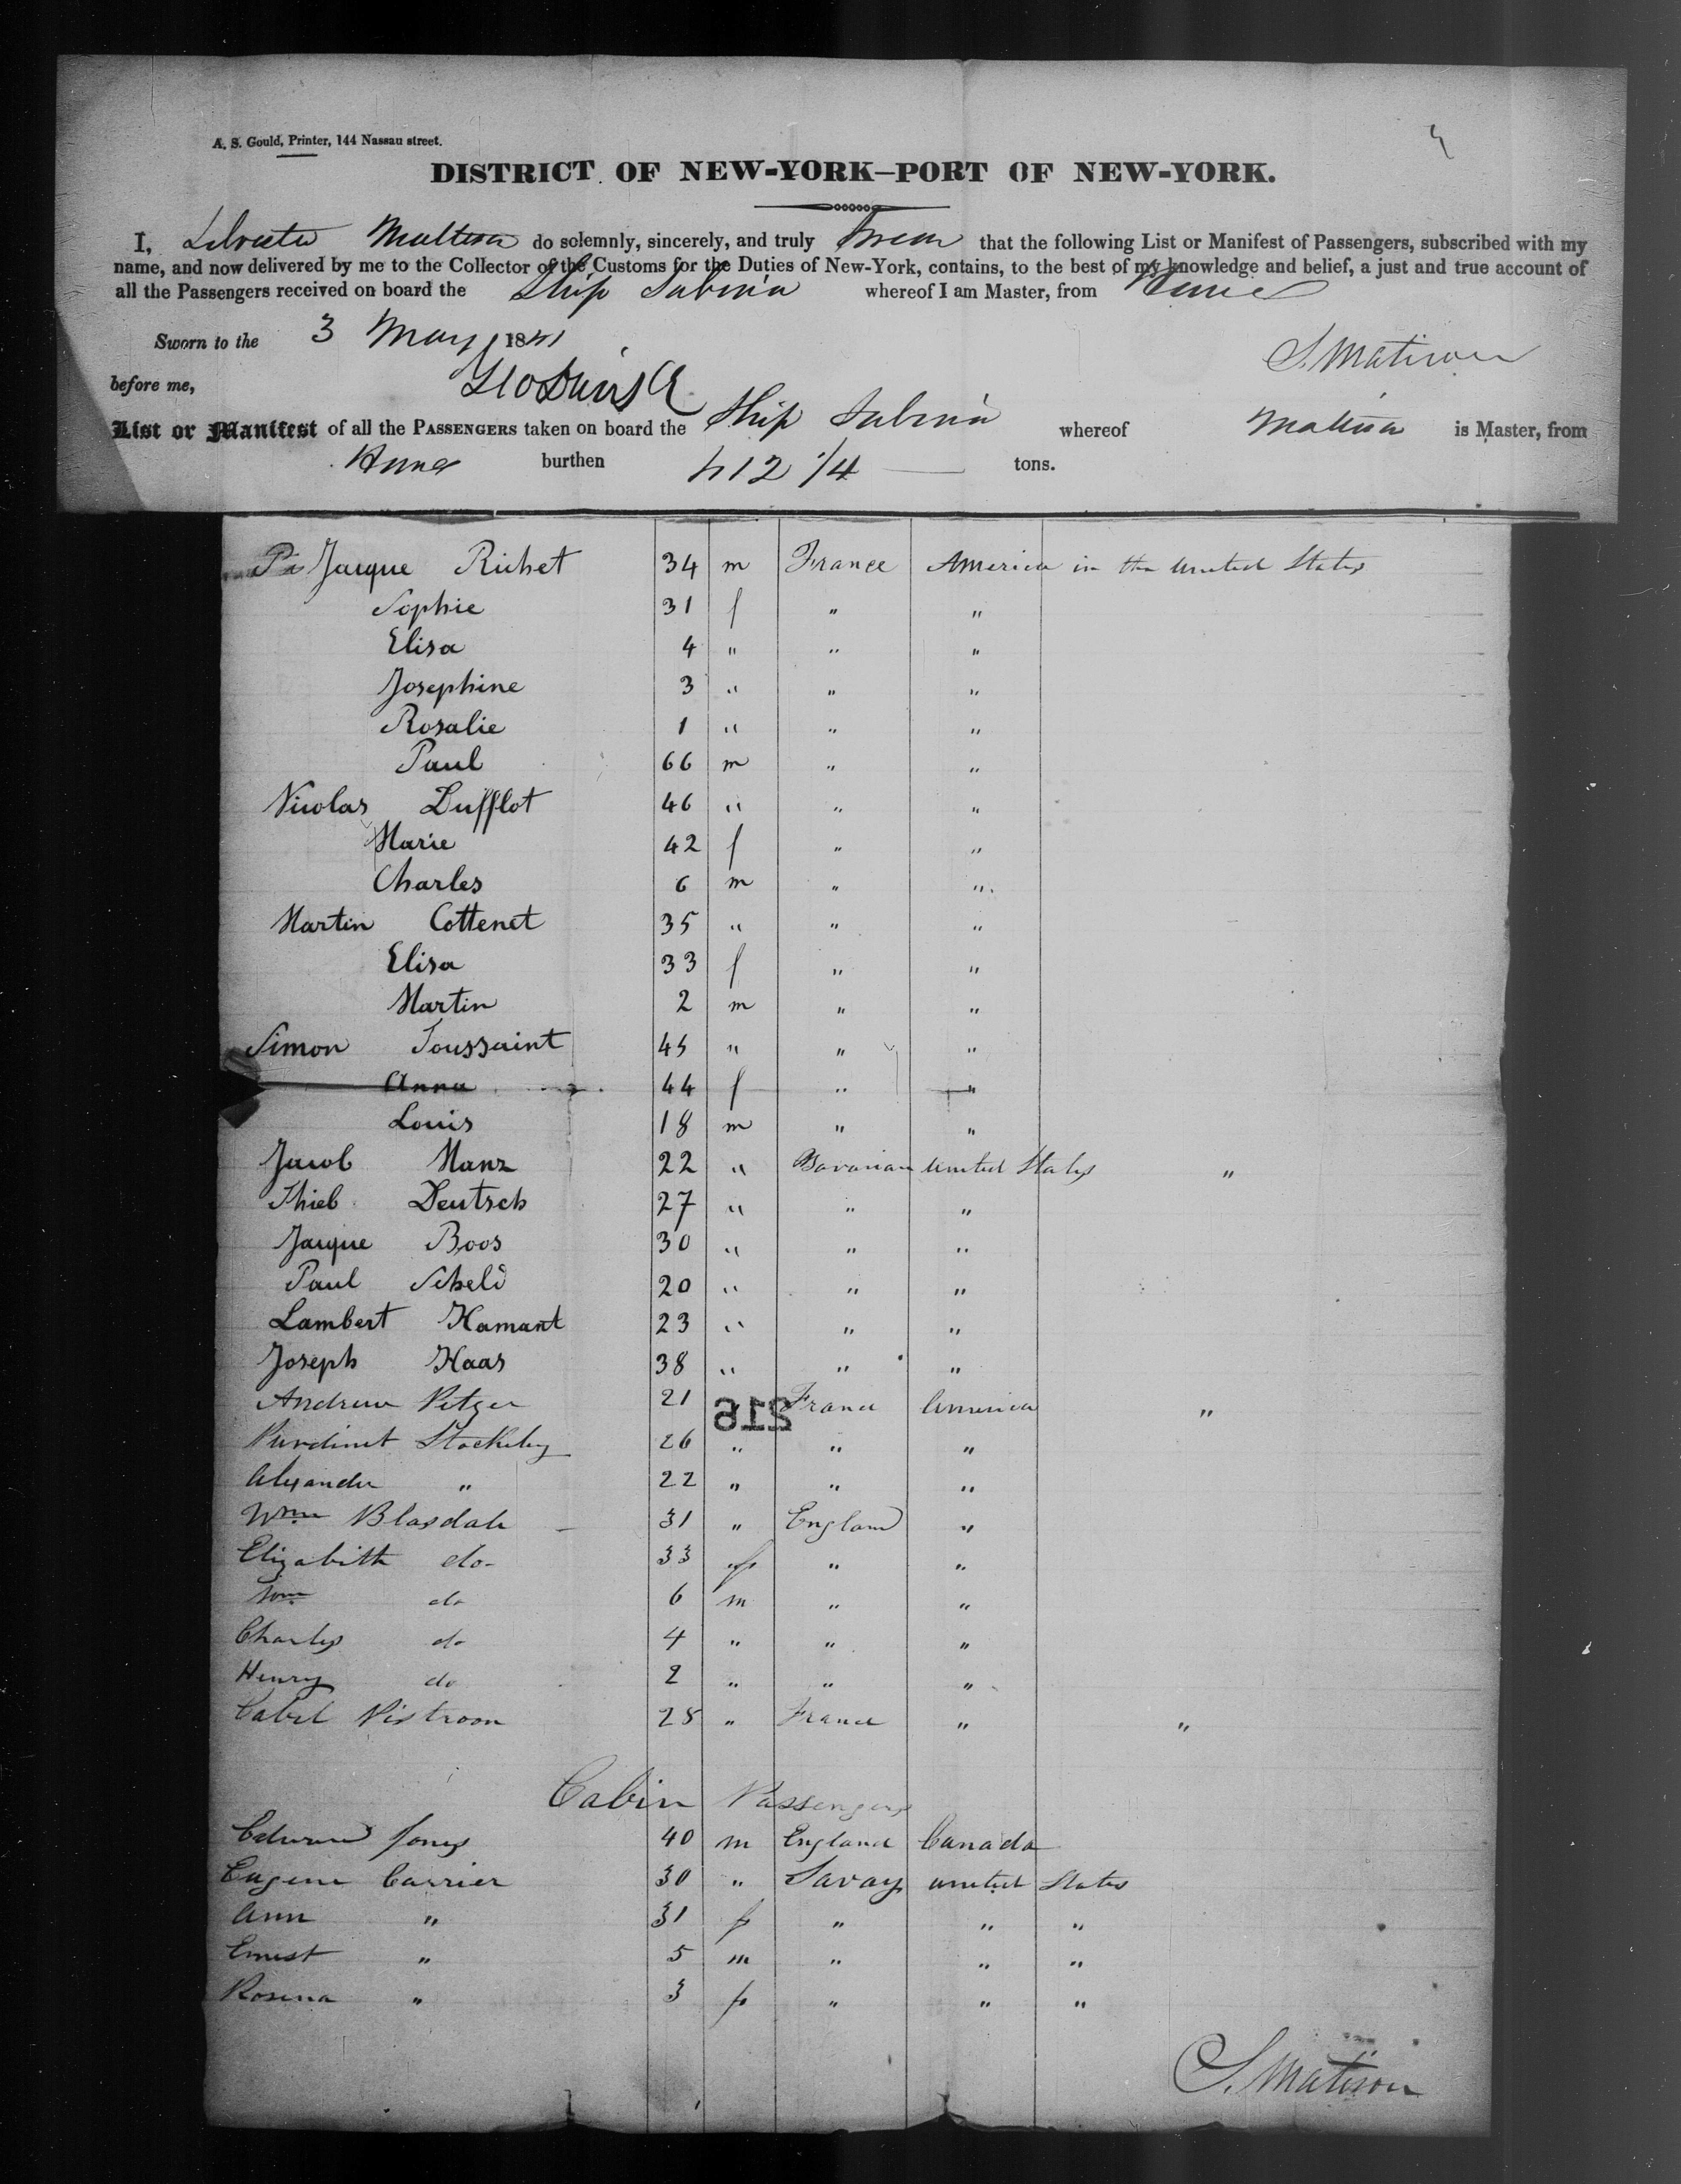 A. S. Gould, Printer, 144 Nassau street.
DISTRICT OF NEW-YORK—PORT OF NEW-YORK.
I, do solemnly, sincerely, and truly Swear that the following List or Manifest of Passengers, subscribed with my
name, and now delivered by me to the Collector of the Customs for the Duties of New-York, contains, to the best of my knowledge and belief, a just and true account of
all the Passengers received on board the Ship Sabina whereof I am Master, from
Sworn to the 3 May 1841
S. Matison
before me,
List or Manifest of all the PASSENGERS taken on board the Ship Sabina whereof Matison is Master, from
burthen 412 1/4 tons.
Jacque Richet 34 m France America in the United States
Sophie 31 f " "
Elisa 4 " " "
Josephine 3 " " "
Rosalie 1 " " "
Paul 66 m " "
Nicolas Dufflot 46 " " "
Marie 42 f " "
Charles 6 m " "
Martin Cottenet 35 " " "
Elisa 33 f " "
Martin 2 m " "
Simon Toussaint 45 " " "
Anna 44 f " "
Louis 18 m " "
Jacob Manz 22 " Bavarian United States "
Thieb Deutsch 27 " " "
Jacque Boos 30 " " "
Paul Scheld 20 " " "
Lambert Hamant 23 " " "
Joseph Haas 38 " " "
Andrew 21 " France America "
216
26 " " "
Alexander " 22 " " "
Wm Blasdale 31 " England "
Elizabeth do 33 f " "
Wm do 6 m " "
Charles do 4 " " "
Henry do 2 " " "
28 " France " "
Cabin Passengers
Edward Jones 40 m England Canada
Eugene Carrier 30 " Savoy United States
Ann " 31 f " " "
Ernest " 5 m " " "
Rosina " 3 f " " "
S. Matison